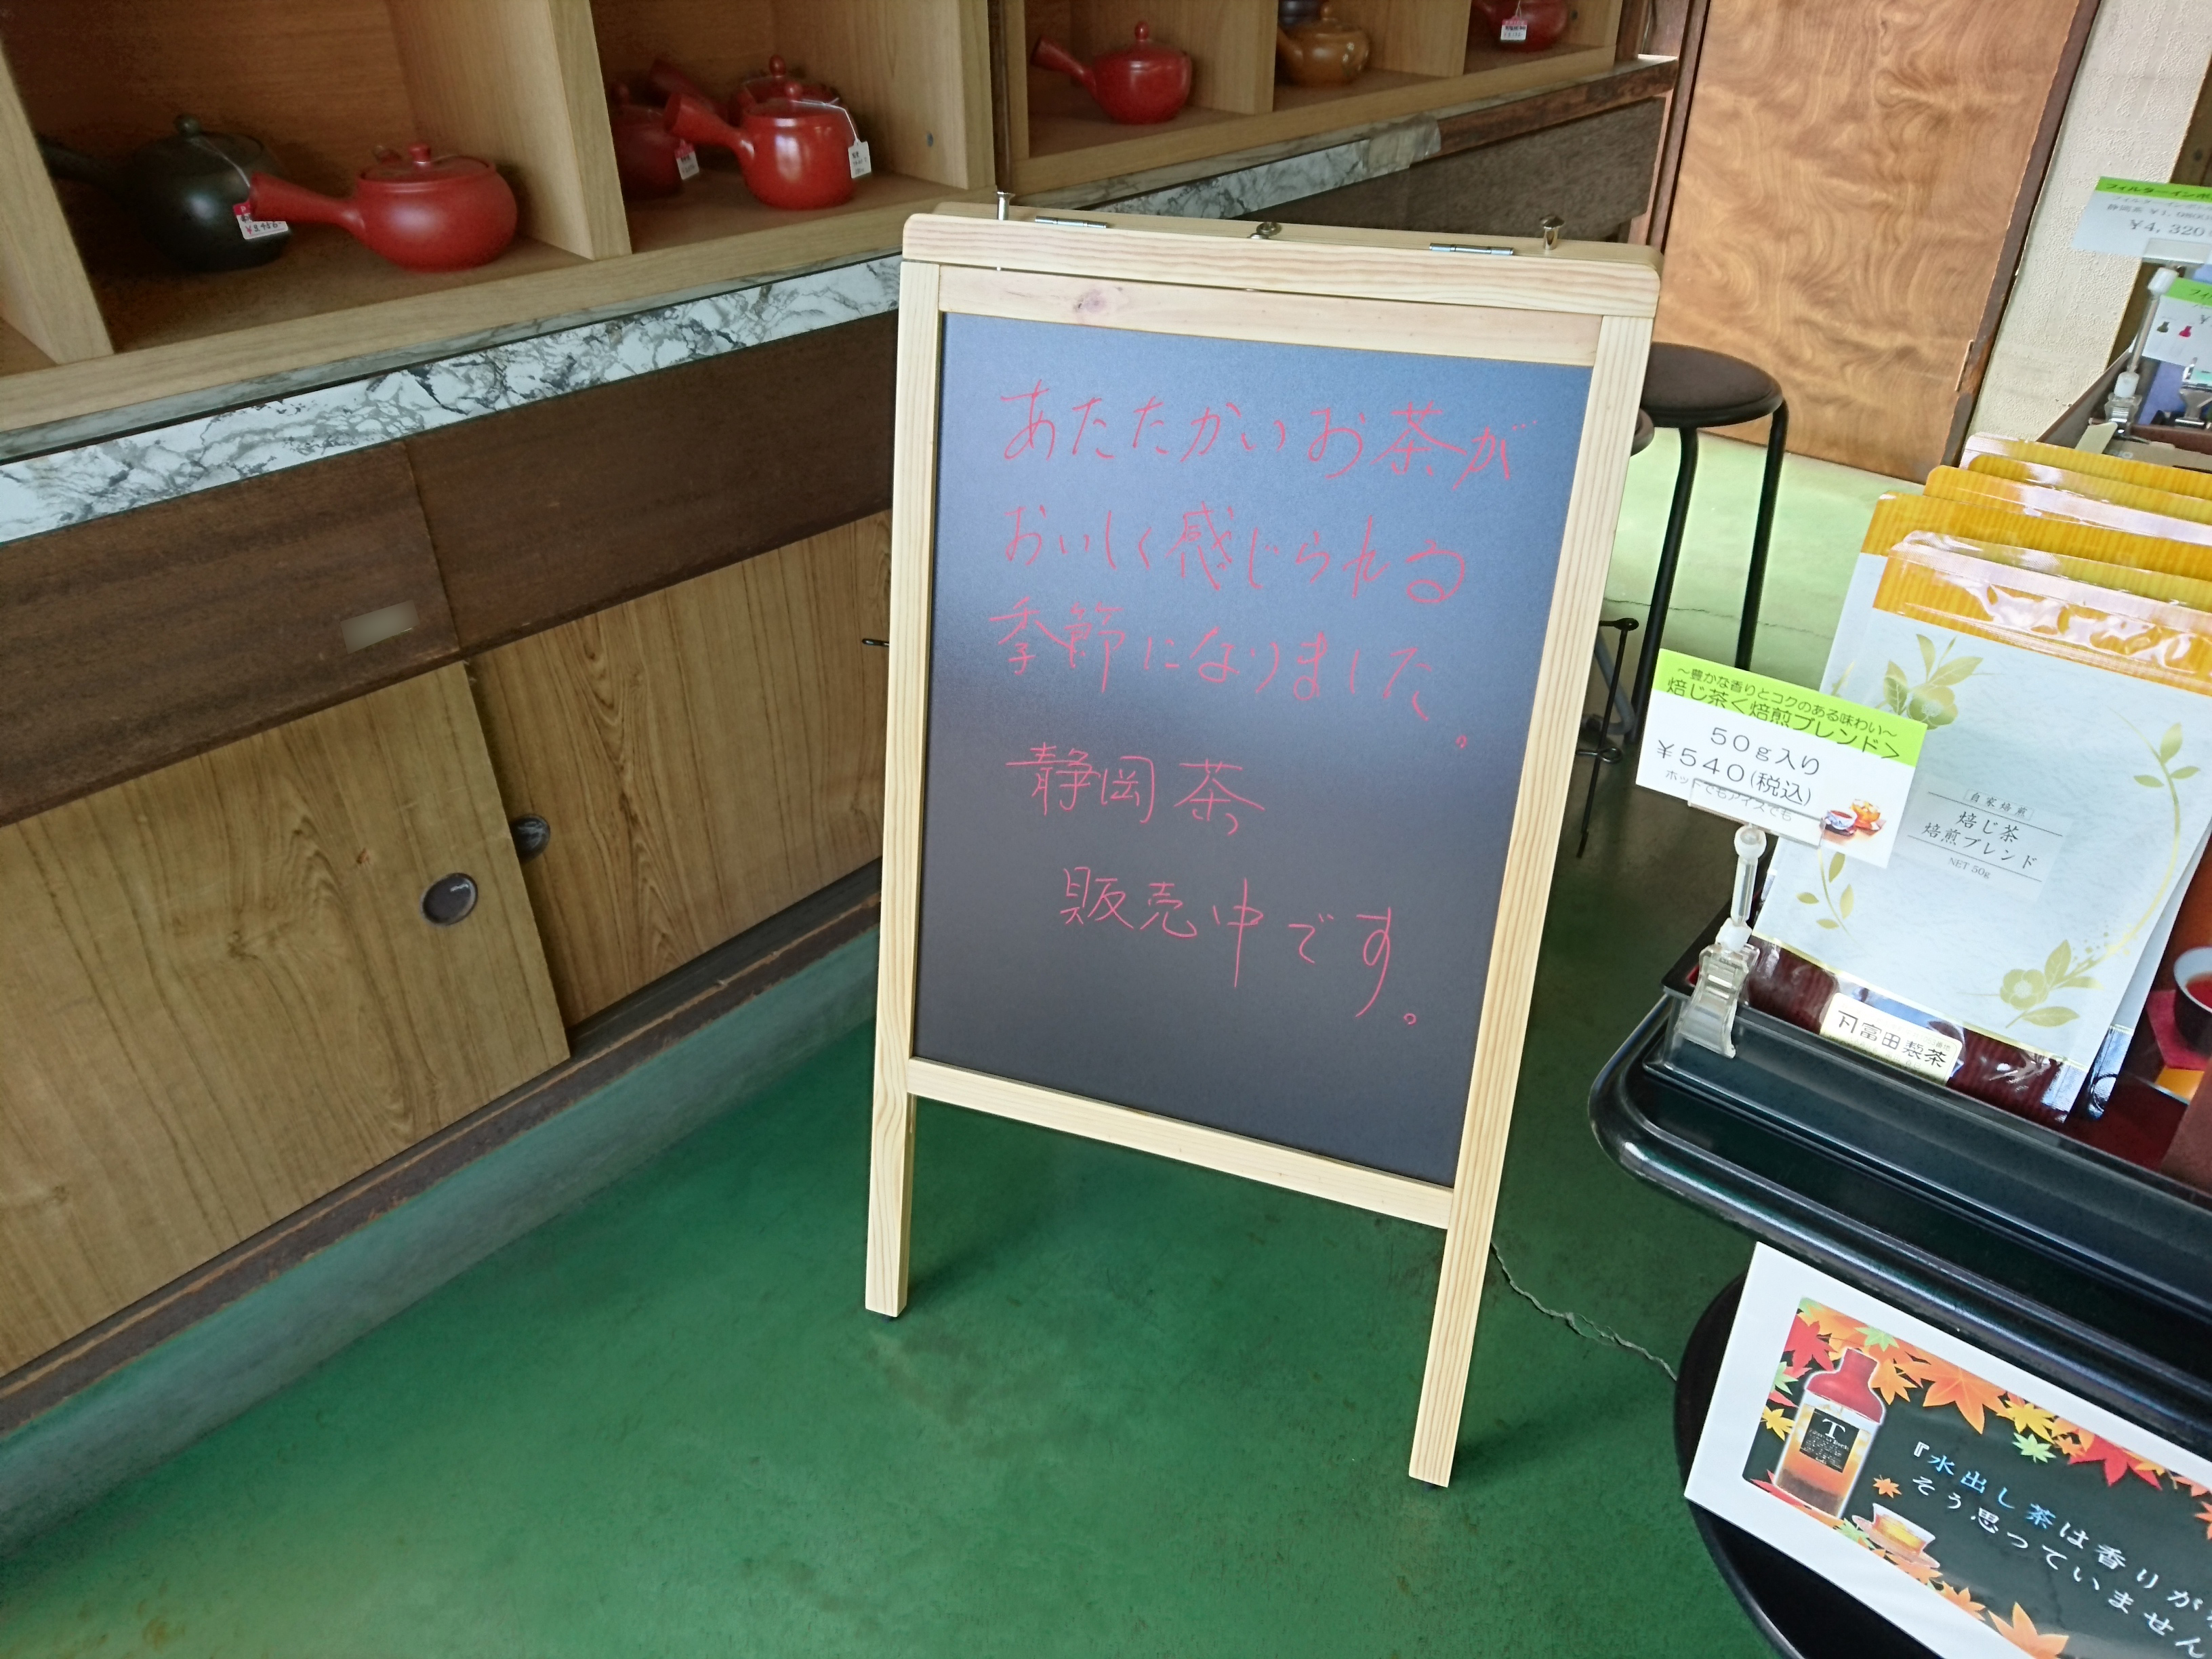 あたたかいお茶が
おいしく感じられる
季節になりました。
静岡茶
販売中です。
¥4,320
～豊かな香りとコクのある味わい～
焙じ茶<焙煎ブレンド>
50g入り
¥540(税込)
ホットでもアイスでも
自家焙煎
焙じ茶
焙煎ブレンド
NET 50g
富田製茶
T
『水出し茶は香りが
そう思っていません